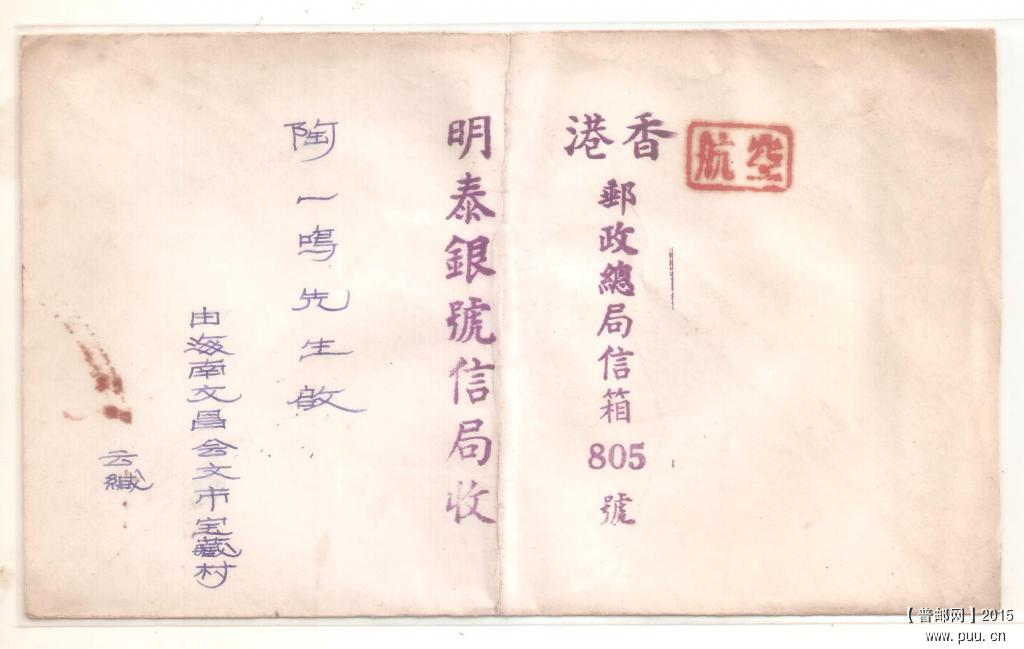 航空
香港
郵政總局信箱805號
明泰銀號信局收
陶一鳴先生啟
由海南文昌会文市宝藏村
云緘
【普邮网】2015
www.puu.cn